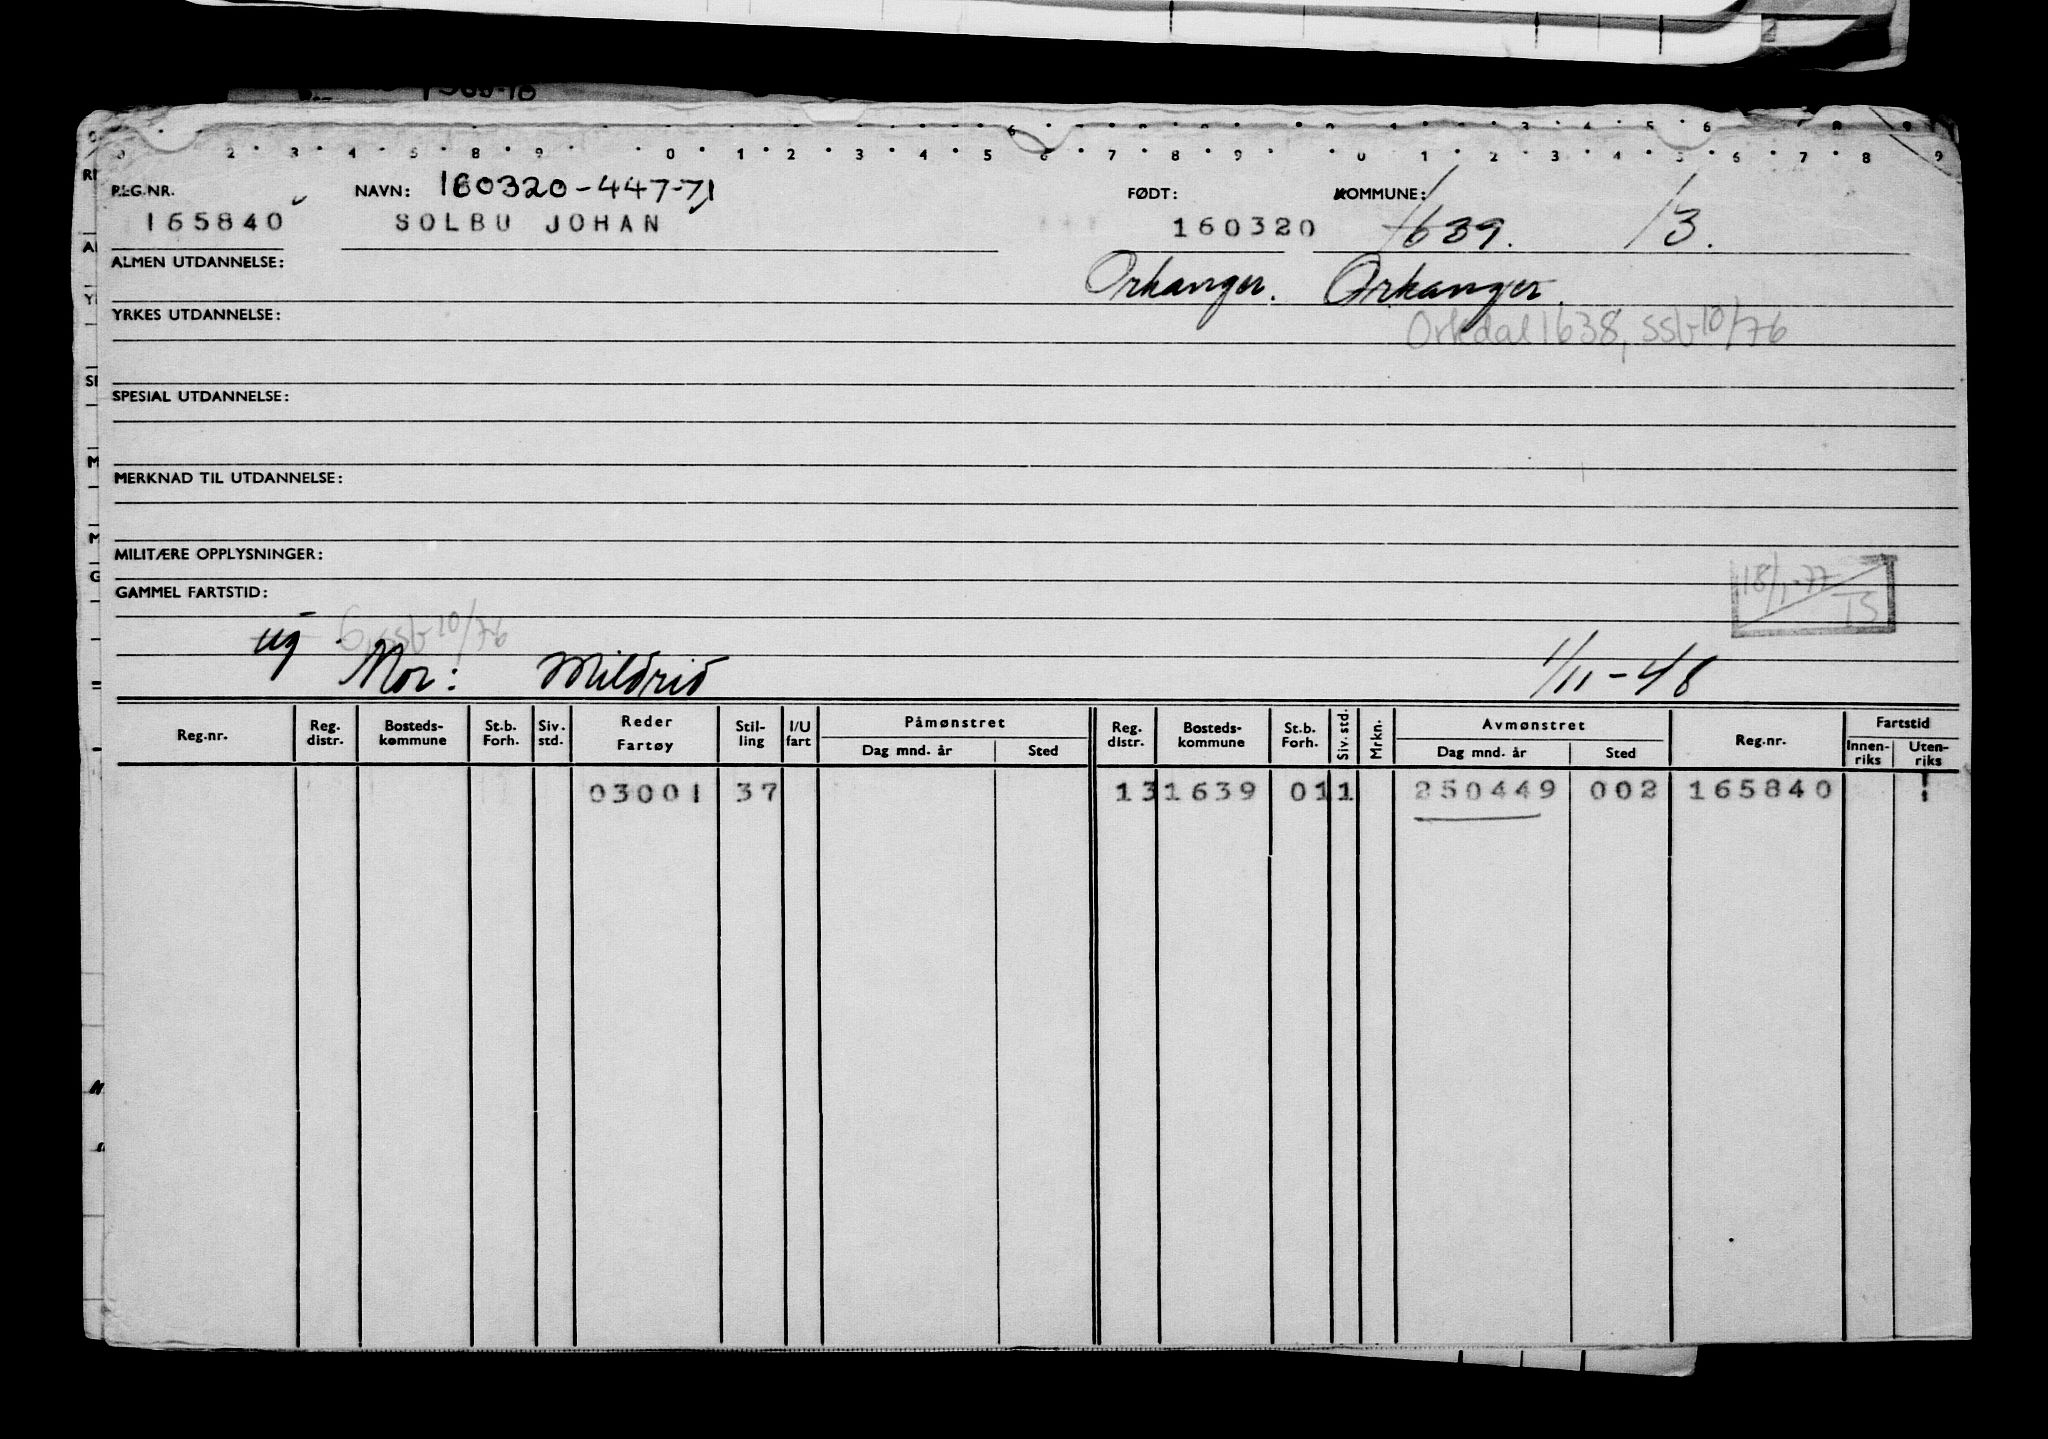 REG.NR. NAVN: 160320-447-71 FØDT: KOMMUNE:
165840 SOLBU JOHAN 160320 1639. 13.
ALMEN UTDANNELSE: Orkanger. Orkanger.
YRKES UTDANNELSE: Orkdal 1638, ssb 10/76
SPESIAL UTDANNELSE:
MERKNAD TIL UTDANNELSE:
MILITÆRE OPPLYSNINGER:
GAMMEL FARTSTID: 18/1-77
TS
ug 6, ssb 10/76
Mor: Mildrid 1/11-48
Reg.nr. Reg. distr. Bosteds- kommune St.b. Forh. Siv. std. Reder Fartøy Stil- ling I/U fart Påmønstret Dag mnd. år Sted Reg. distr. Bosteds- kommune St.b. Forh. Siv. std. Mrkn. Avmønstret Dag mnd. år Sted Reg.nr. Fartstid Innen- riks Uten- riks
03001 37 13 1639 01 1 250449 002 165840